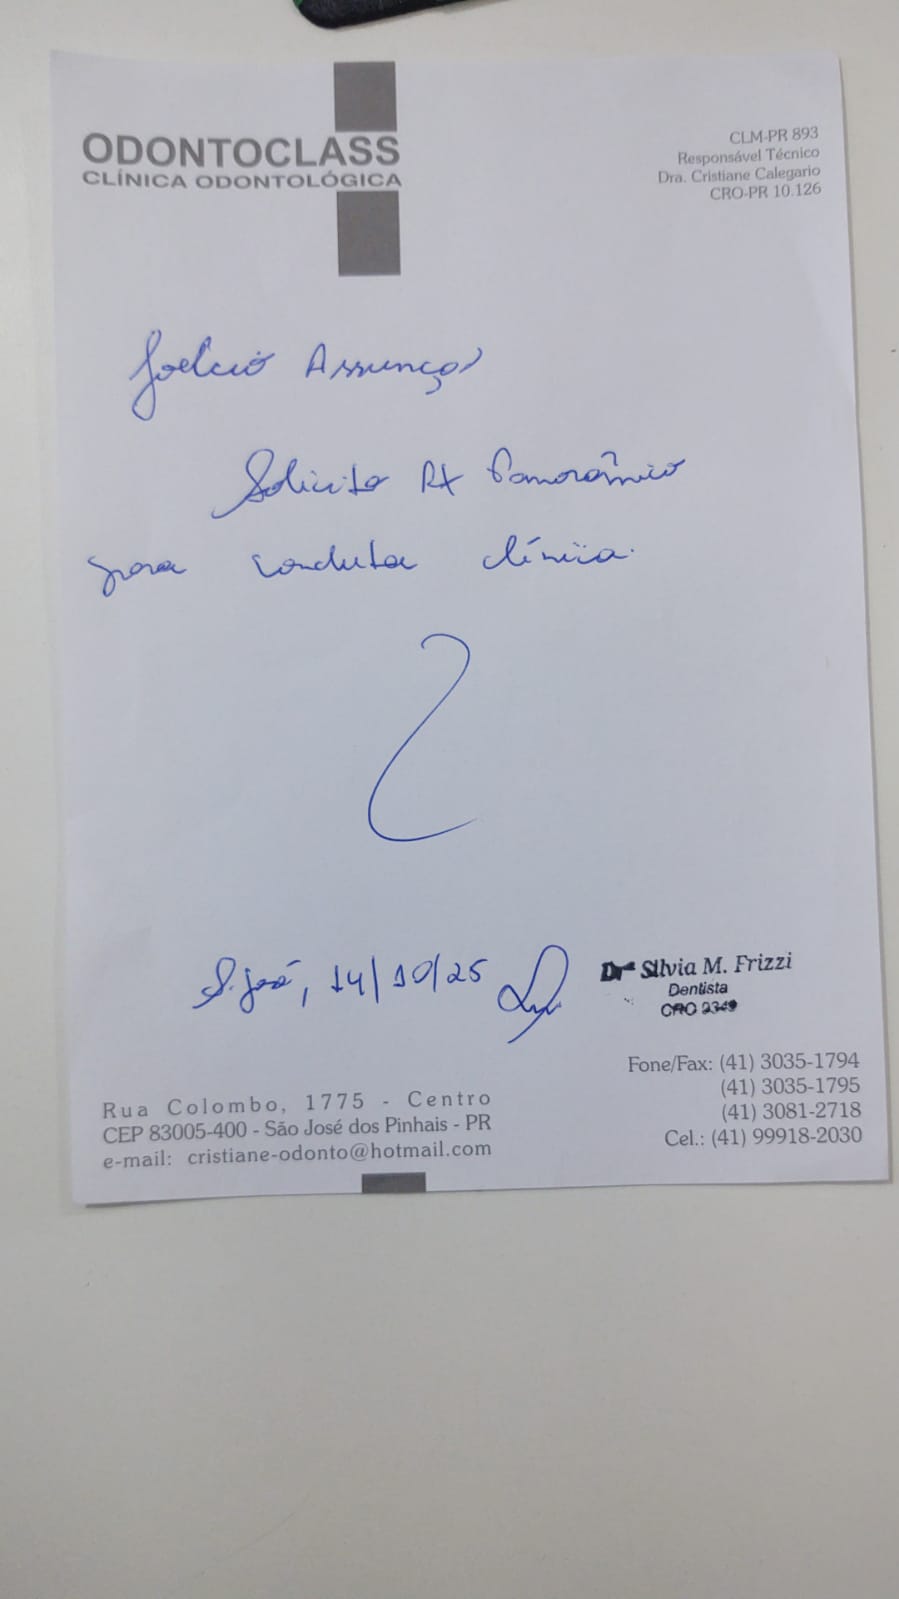 ODONTOCLASS
CLÍNICA ODONTOLÓGICA
CLM-PR 893
Responsável Técnico
Dra. Cristiane Calegario
CRO-PR 10.126
Joelcio Assunção
Solicito RX Panorâmico
para conduta clínica.
S. José, 14/10/25
Drª Silvia M. Frizzi
Dentista
CRO 2349
Fone/Fax: (41) 3035-1794
(41) 3035-1795
(41) 3081-2718
Cel.: (41) 99918-2030
Rua Colombo, 1775 - Centro
CEP 83005-400 - São José dos Pinhais - PR
e-mail: cristiane-odonto@hotmail.com